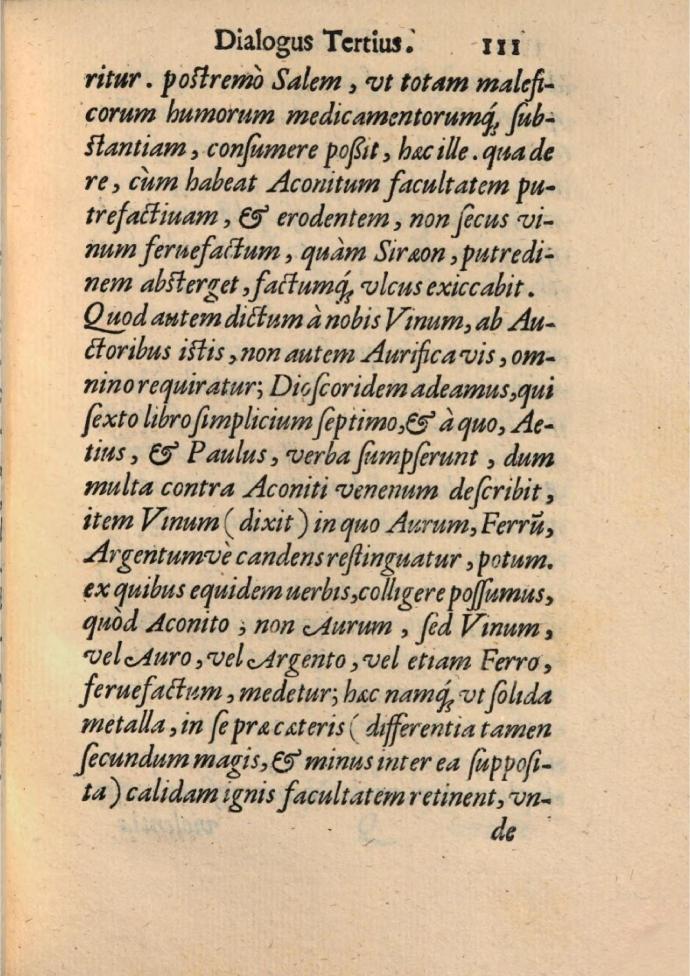 Dialogus Tertius. 111
ritur. poſtremò Salem, vt totam malefi-
corum humorum medicamentorumq́; ſub-
ſtantiam, conſumere poßit, hæc ille. qua de
re, cùm habeat Aconitum facultatem pu-
trefactiuam, & erodentem, non ſecus vi-
num feruefactum, quàm Siræon, putredi-
nem abſterget, factumq́; vlcus exiccabit.
Quod autem dictum à nobis Vinum, ab Au-
ctoribus iſtis, non autem Aurifica vis, om-
nino requiratur; Dioſcoridem adeamus, qui
ſexto libro ſimplicium ſeptimo, & à quo, Ae-
tius, & Paulus, verba ſumpſerunt, dum
multa contra Aconiti venenum deſcribit,
item Vinum (dixit) in quo Aurum, Ferrū,
Argentumvè candens reſtinguatur, potum.
ex quibus equidem uerbis, colligere poſſumus,
quòd Aconito, non Aurum, ſed Vinum,
vel Auro, vel Argento, vel etiam Ferro,
feruefactum, medetur; hæc namq́; vt ſolida
metalla, in ſe præ cæteris (differentia tamen
ſecundum magis, & minus inter ea ſuppoſi-
ta) calidam ignis facultatem retinent, vn-
de